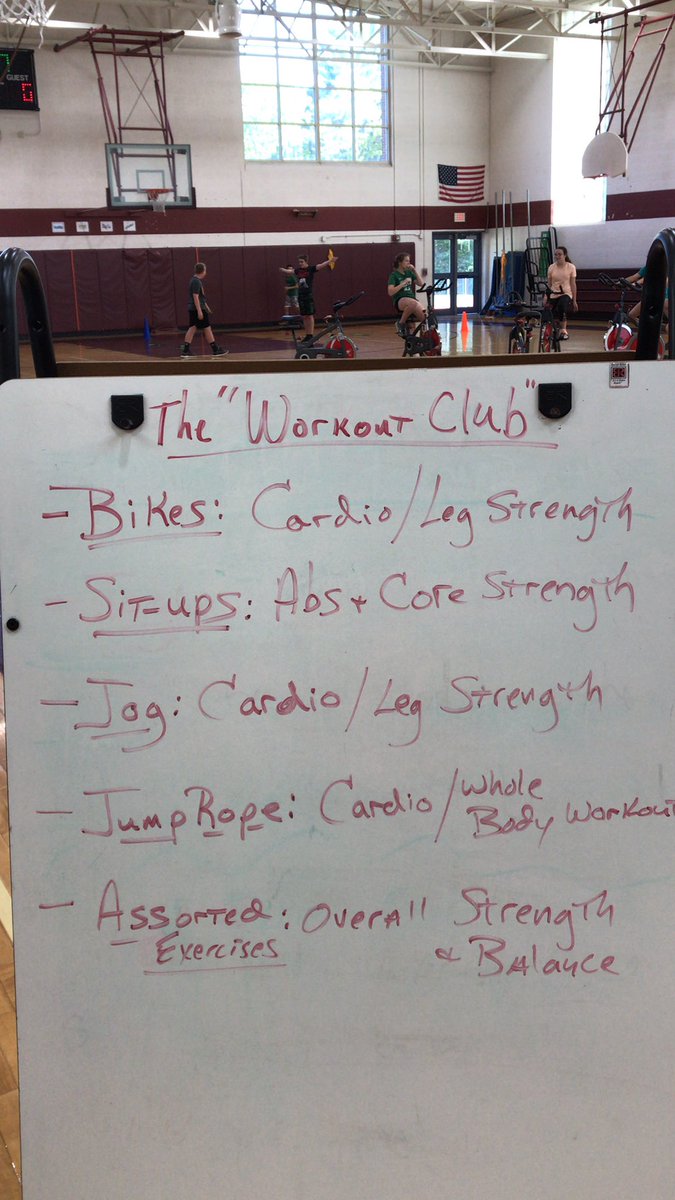 7
GUEST
0
The "Workout Club"
- Bikes: Cardio/Leg Strength
- Sit-ups: Abs + Core Strength
- Jog: Cardio/Leg Strength
- Jump Rope: Cardio/Whole
Body Workout
- Assorted: Overall Strength
Exercises & Balance